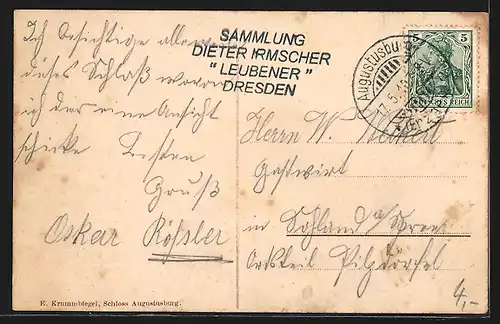 Ich besichtige
dieses Schloß wovon
ich der eine Ansicht
schicke Besten
Gruß
Oskar Rößler
SAMMLUNG
DIETER IRMSCHER
" LEUBENER "
DRESDEN
Augustusburg
5 5
DEUTSCHES REICH
Herrn W.
Gastwirt
in Sohland a/Spree
Ortsteil Pilzdörfel
4,-
E. Krumnbiegel, Schloss Augustusburg.